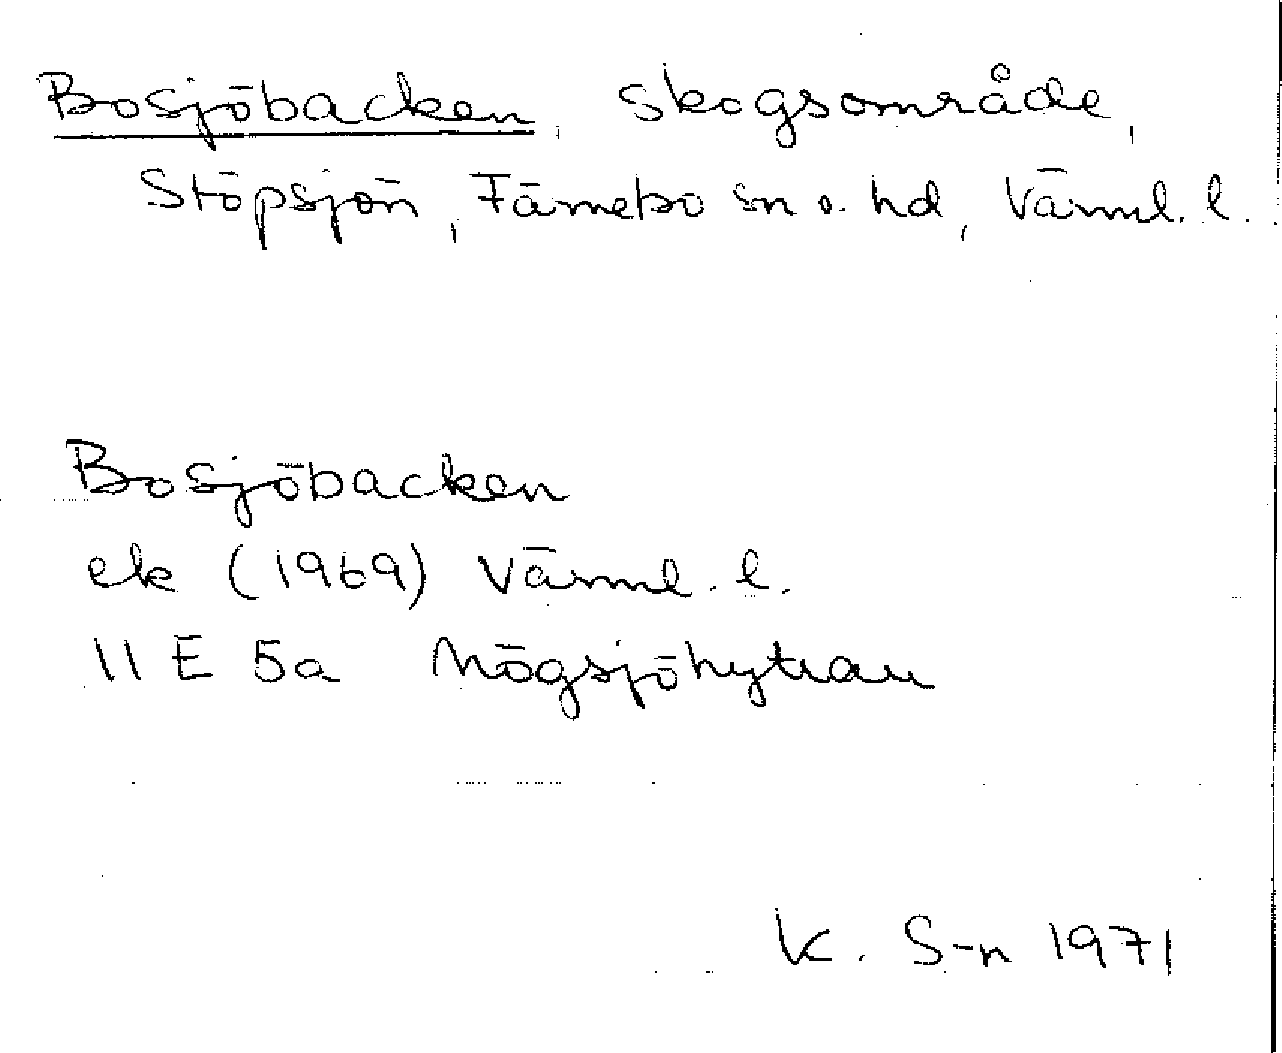 Bosjöbacken, skogsområde,
Stöpsjön, Färnebo sn o. hd, Värml. l.
Bosjöbacken
ek (1969) Värml. l.
11 E 5a Nögsjöhyttan
K. S-n 1971